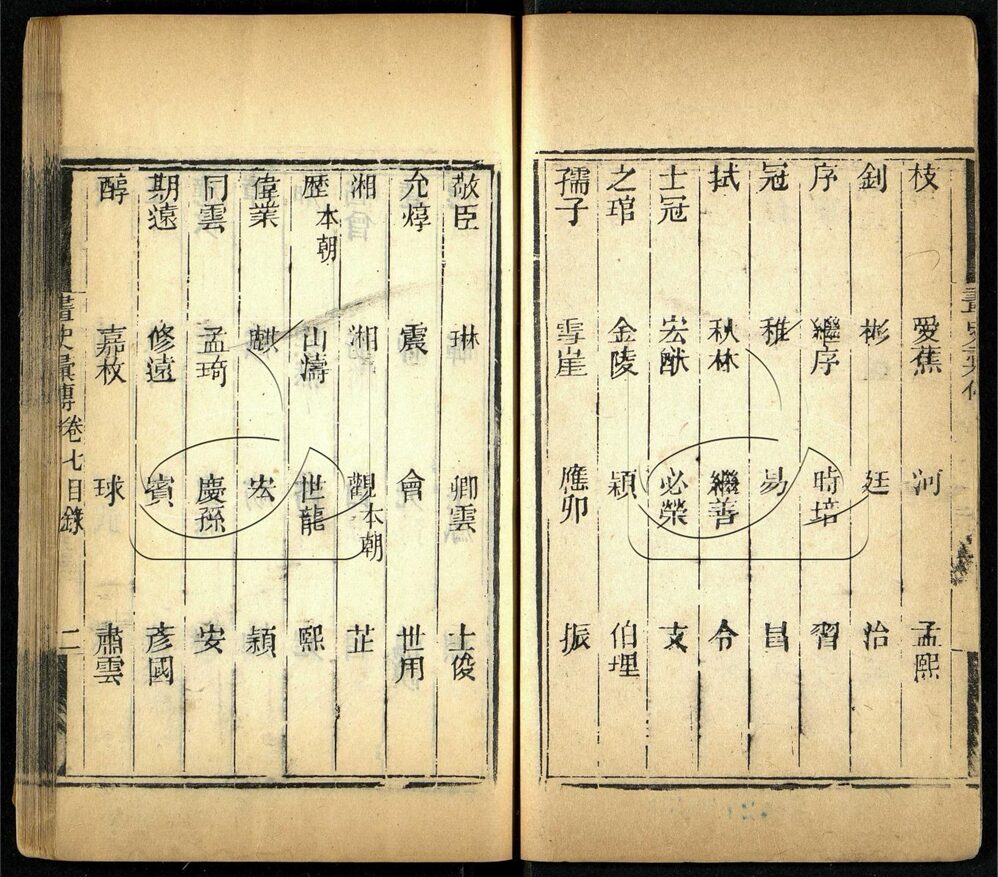 枝 愛蕉 河 孟熙
釗 彬 廷 治
序 繼序 時培 習
冠 稚 易 昌
拭 秋林 繼善 令
士冠 宏猷 必榮 支
之琯 金陵 穎 伯理
孺子 雪崖 應卯 振
敬臣 琳 卿雲 士俊
允焞 震 會 世用
湘 湘 觀本朝 芷
歷本朝 山濤 世龍 熙
偉業 麒 宏 穎
同雲 孟琦 慶孫 安
期遠 修遠 賓 彥國
醇 嘉枚 球 肅雲
畫史彙傳卷七目錄 二